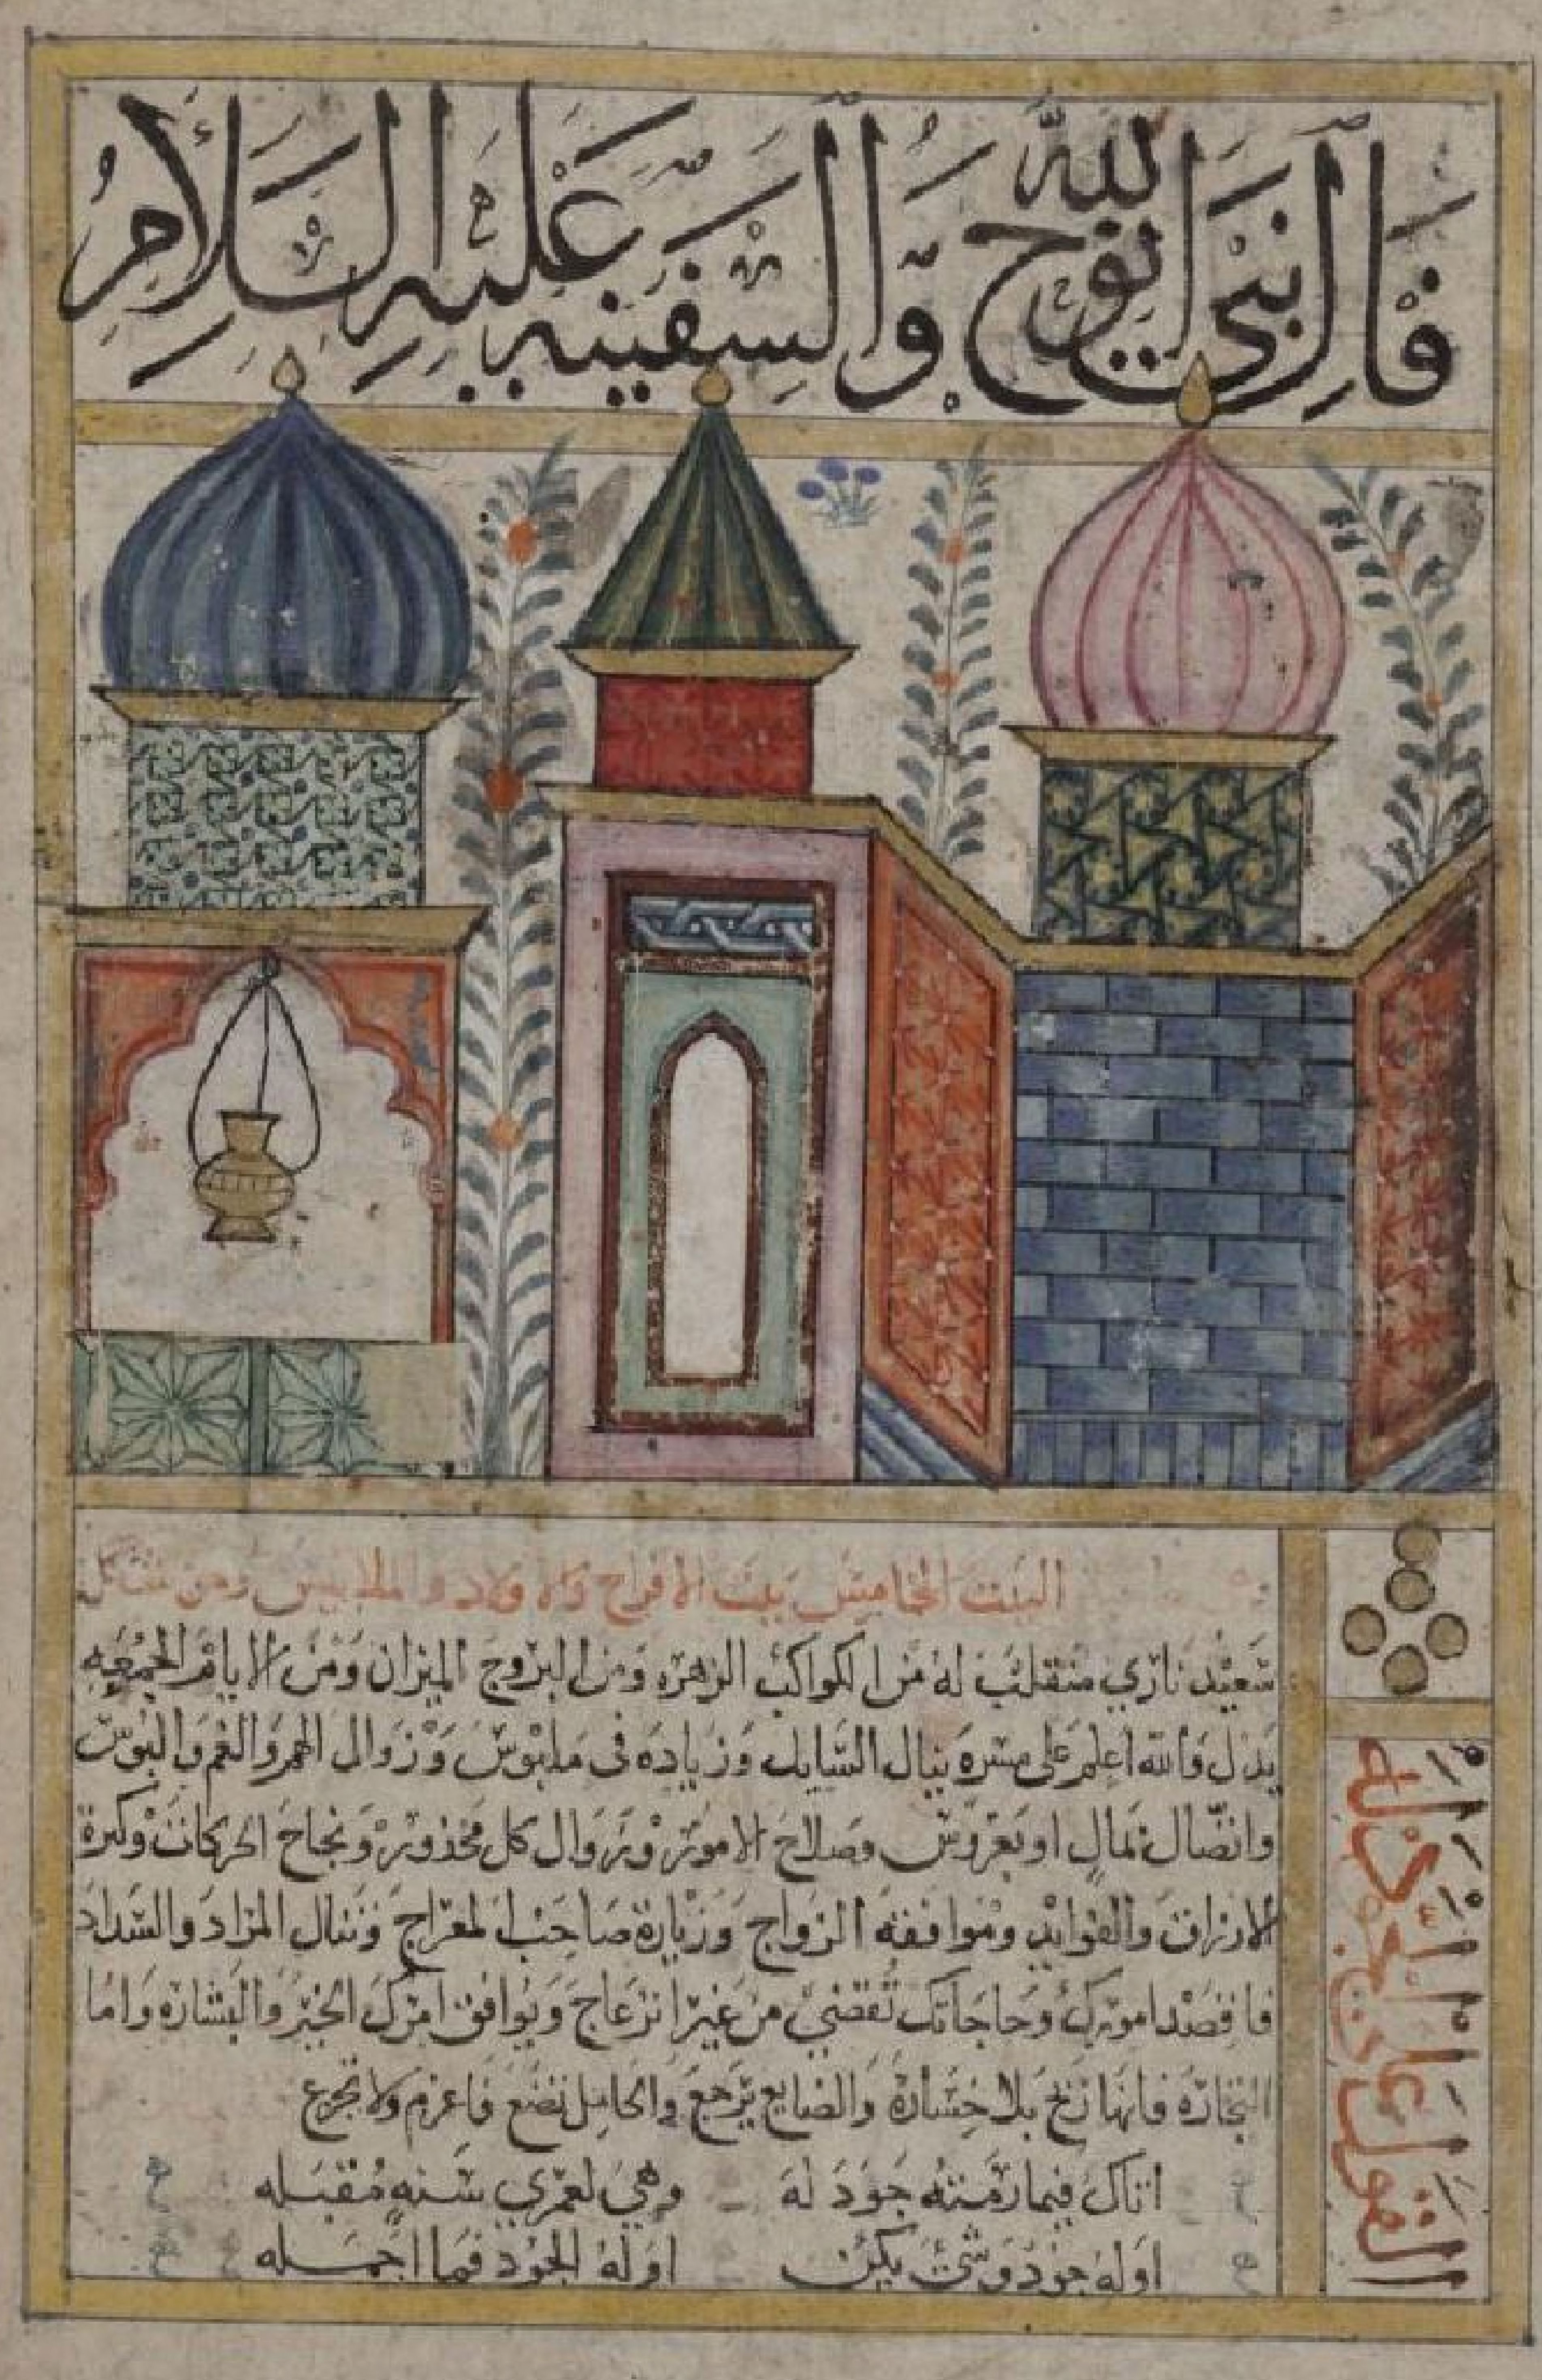 فال نبي الله نوح والسفينه عليه السلام
البيت الخامس بيت الافراح والاولاد والملابيس ومن
سعيد ناري منقلب له من الكواكب الزهره ومن البروج الميزان ومن الايام الجمعه
يدل والله اعلم على مسره ينال السايل وزياده في ملبوس وزوال الهم والغم والبوس
واتصال بمال او بعروس وصلاح الامور وزوال كل محذور ونجاح الحركات وكثرة
الارزاق والفوايد وموافقة الزواج وزيارة صاحب المعراج وتنال المراد والسداد
فاقصد امورك وحاجاتك تقضي من غير انزعاج ويوافق امرك الخير والبشاره واما
التجارة فانها تربح بلا خسارة والضايع يرجع والحامل تضع فاعزم ولا تجزع
اتاك فيما رمته جود له وهي لعمري سنه مقبله
اوله جود وشي يكن اوله الجود فما اجمله
القول على